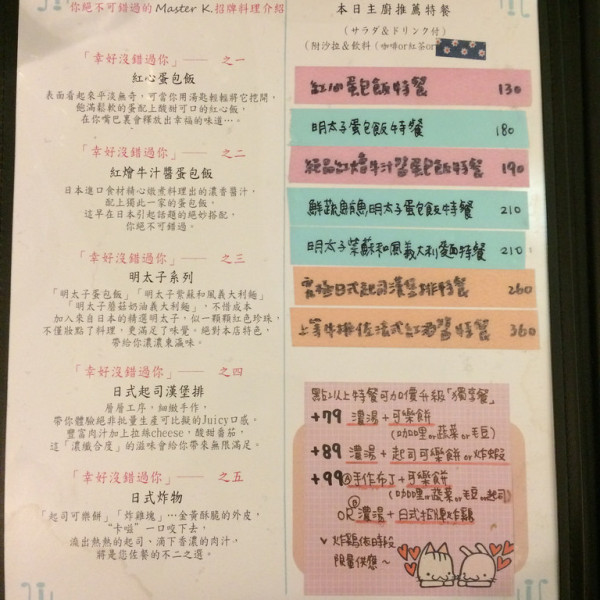 你絕不可錯過的 Master K 招牌料理介紹
「幸好沒錯過你」── 之一
紅心蛋包飯
表面看起來平沒無奇，可當你用湯匙輕輕將它挖開，
飽滿鬆軟的蛋配上酸甜可口的紅心飯，
在你嘴巴裏會釋放出幸福的味道…。
「幸好沒錯過你」── 之二
紅燴牛汁醬蛋包飯
日本進口食材精心燉煮料理出的濃香醬汁，
配上獨此一家的蛋包飯，
這早在日本引起話題的絕妙搭配，
你絕不可錯過。
「幸好沒錯過你」── 之三
明太子系列
「明太子蛋包飯」「明太子紫蘇和風義大利麵」
「明太子蘑菇奶油義大利麵」，不惜成本
加入來自日本的精選明太子，似一顆顆紅色珍珠，
不僅妝點了料理，更滿足了味覺。絕對本店特色，
帶給你濃濃東瀛味。
「幸好沒錯過你」── 之四
日式起司漢堡排
層層工序，細緻手作，
帶你體驗絕非批量生產可比擬的Juicy口感，
豐富肉汁加上拉絲cheese，酸甜番茄，
這「濃纖合度」的滋味會給你帶來無限滿足。
「幸好沒錯過你」── 之五
日式炸物
「起司可樂餅」「炸雞塊」…金黃酥脆的外皮，
"卡嗞"一口咬下去，
流出熱熱的起司、滴下香濃的肉汁，
將是您佐餐的不二之選。
本日主廚推薦特餐
(サラダ&ドリンク付)
(附沙拉&飲料(咖啡or紅茶or
紅心蛋包飯特餐 130
明太子蛋包飯特餐 180
極品紅燴牛汁醬蛋包飯特餐 190
鮮蔬鮪魚明太子蛋包飯特餐 210
明太子紫蘇和風義大利麵特餐 210
究極日式起司漢堡排特餐 260
上等牛排佐法式紅酒醬特餐 360
點以上特餐可加價升級「獨享餐」
+79 濃湯+可樂餅
(咖哩or蔬菜or毛豆)
+89 濃湯+起司可樂餅or炸蝦
+99 Ⓐ手作布丁+可樂餅
(咖哩or蔬菜or毛豆or起司)
OR Ⓑ濃湯+日式招牌炸雞
✓ 炸雞依時段
限量供應~